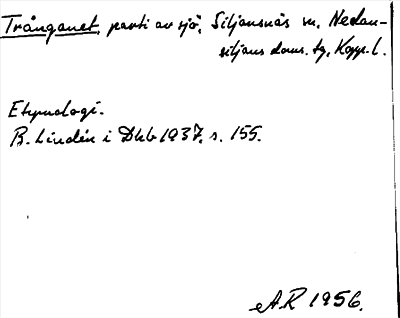 Trånganet, parti av sjö, Siljansnäs sn, Nedan-
siljans doms. tg, Kopp. l.
Etymologi.
B. Lindén i Dhb 1937, s. 155.
AR 1956.